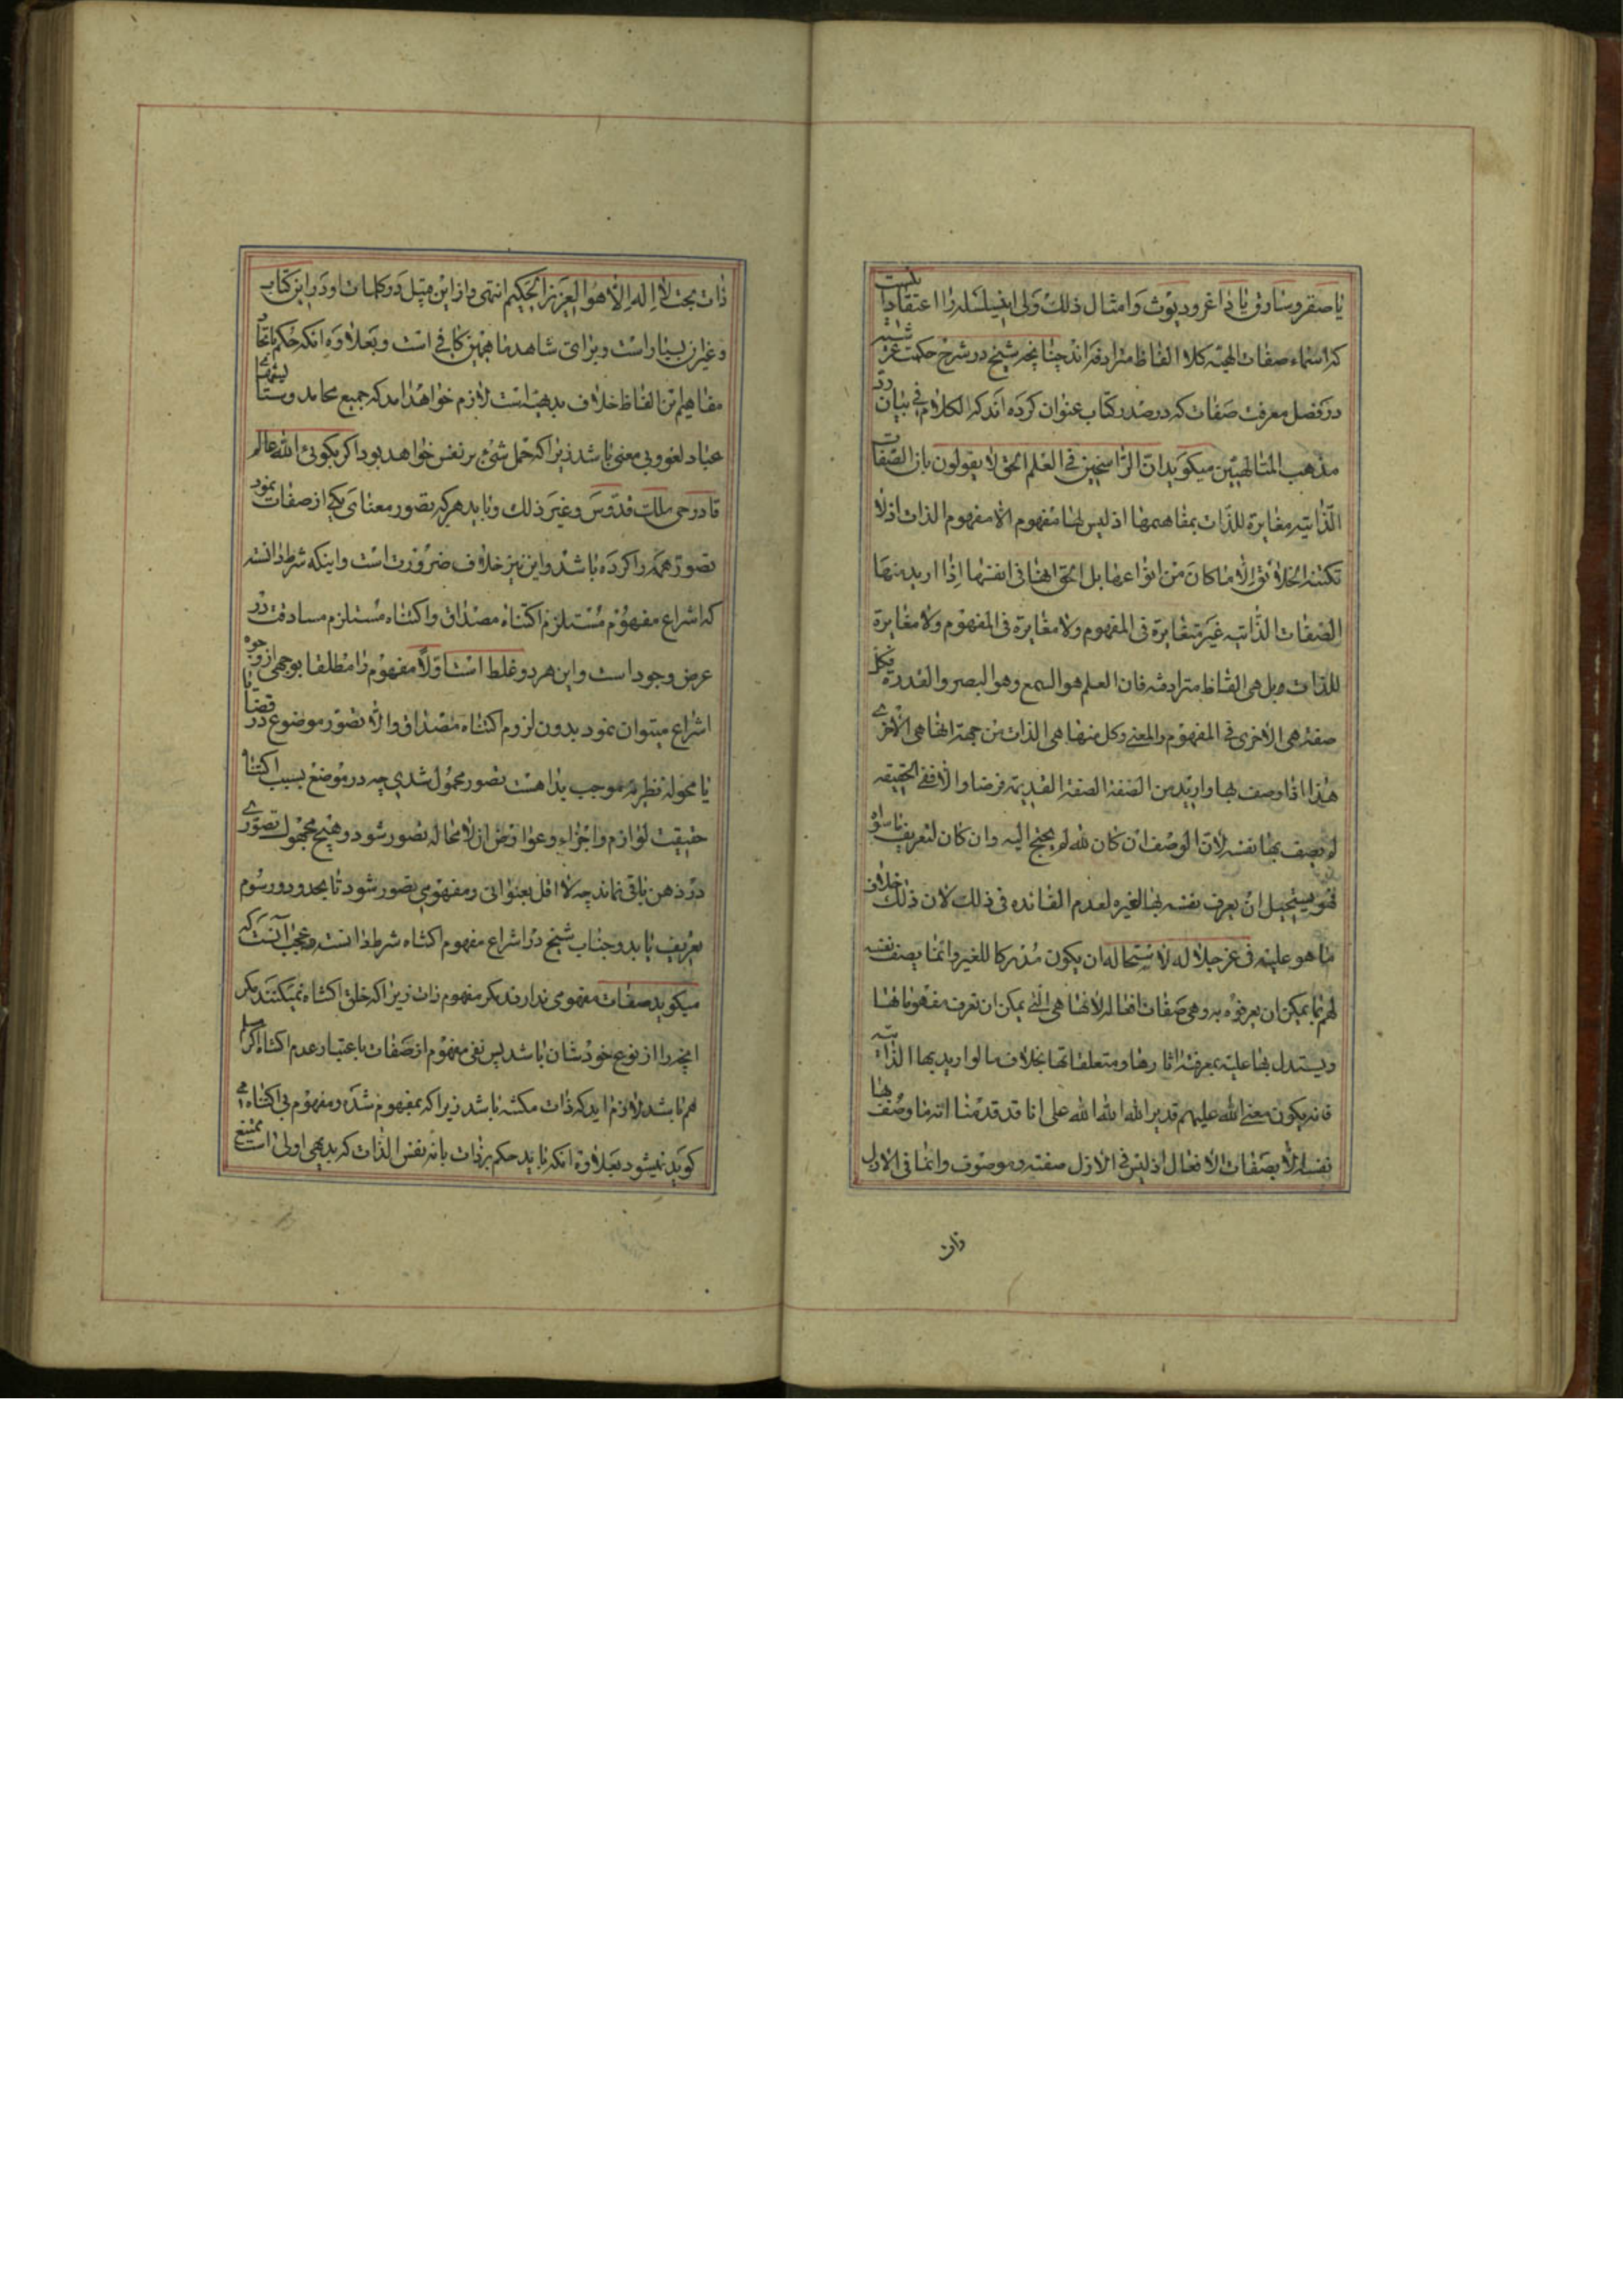 یا صقر و ساوق یا داغر و دیوث و امثال ذلک ولی این سلسله را اعتقاد اینست
که اسماء صفات الهیه کلا الفاظ مترادفه اند چنانچه شیخ در شرح حکمت عرشیه
در فصل معرفت صفات که در صدر کتاب عنوان کرده اند که الکلام فی بیان رد
مذهب المتالهیین میکوید ان الراسخین فی العلم الحق لا یقولون بان الصفات
الذاتیه مغایرة للذات بمفاهیمها اذ لیس لها مفهوم الا مفهوم الذات اذ لا
تکتنه الخلائق الا ما کان من انواعها بل الحق انها فی انفسها اذا ارید منها
الصفات الذاتیه غیر متغایرة فی المفهوم ولا مغایرة فی المفهوم ولا مغایرة
للذات و بل هی الفاظ مترادفه فان العلم هو السمع و هو البصر و القدرة فکل
صفة هی الاخری فی المفهوم و المعنی و کل منها هی الذات من جهة انها هی الاخری
هذا اذا وصف بها و ارید من الصفة الصفة القدیمة فرضا و الا ففی الحقیقه
لم یصف بها نفسه لان الوصف ان کان لله لم یحتج الیه و ان کان لتعریف ما سواه
فهو یستحیل ان یعرف نفسه بها لغیره لعدم الفائده فی ذلک لان ذلک خلاف
ما هو علیه فی عز جلاله لاستحاله ان یکون مدرکا للغیر و انما یصف نفسه
لهم بما یمکن ان یعرفوه به و هی صفات افعاله لانها هی التی یمکن ان تعرف مفهوماتها
و یستدل بها علیه بمعرفة اثارها و متعلقاتها بخلاف ما لو ارید بها الذاتیه
فانه یکون معنی الله علیهم قدیر الله الله الله علی انا قد قدمنا انه ما وصف بها
نفسه الا بصفات الافعال اذ لیس فی الازل صفته و موصوف و انما فی الازل
ذات
ذات بحت لا اله الا هو العزیز الحکیم انتهی و از این قبیل در کلمات او در این کتاب
و غیر آن بسیار است و برای شاهد ما همین کافی است و بعلاوه انکه حکم باتحاد
مفاهیم این الفاظ خلاف بدیهیه است لازم خواهد امد که جمیع محامد و ستایشهای
عباد لغو و بی معنی باشد زیرا که حمل شیء بر نفس خواهد بود اکر بکوئی الله عالم
قادر حی ملک قدوس و غیر ذلک و باید هر که تصور معنای یکی از صفات نمود
تصور همه را کرده باشد و این نیز خلاف ضرورت است و اینکه شرط دانسته
که انتزاع مفهوم مستلزم اکتناه مصداق و اکتناه مستلزم مساوقت در
عرض وجود است و این هر دو غلط است اولا مفهوم را مطلقا بوجهی از وجوه
انتزاع میتوان نمود بدون لزوم اکتناه مصداق و الا تصور موضوع در قضایا
یا محوله نظریه موجب بداهت تصور محمول شدی چه در موضع بسبب اکتناه
حقیقت لوازم و اجزاء و عوارض ان لا محاله تصور شود و هیچ مجهول تصوری
در ذهن باقی نماند چه لا اقل بعنوانی و مفهومی تصور شود تا بحدود و رسوم
تعریف یابد و جناب شیخ در انتزاع مفهوم اکتناه شرط دانسته و عجب آنست که
میکوید صفات مفهومی ندارند مکر مفهوم ذات زیرا که خلق اکتناه نمیکنند مکر
انچه را از نوع خودشان باشد پس نفی مفهوم از صفات باعتبار عدم اکتناه اکر مسلم
هم باشد لازم اید که ذات مکتنه باشد زیرا که بمفهوم شده و مفهوم بی اکتناه می
کوید نمیشود بعلاوه انکه باید حکم بر ذات بانه نفس الذات که بدیهی اولی است ممتنع